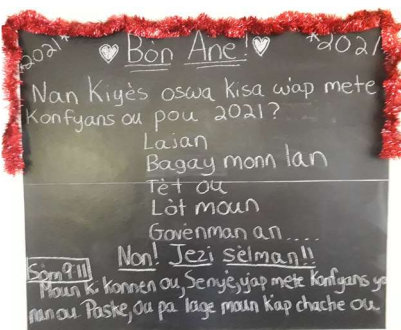 *2021* ♡ Bòn Ane! ♡ *2021
Nan Kiyès oswa kisa w'ap mete
Konfyans ou pou 2021?
Lajan
Bagay monn lan
Tèt ou
Lòt moun
Govènman an....
Non! Jezi sèlman!!
Sòm 9:11
Moun ki konnen ou, Senyè, yap mete konfyans yo
nan ou Paske, ou pa lage moun k'ap chache ou.